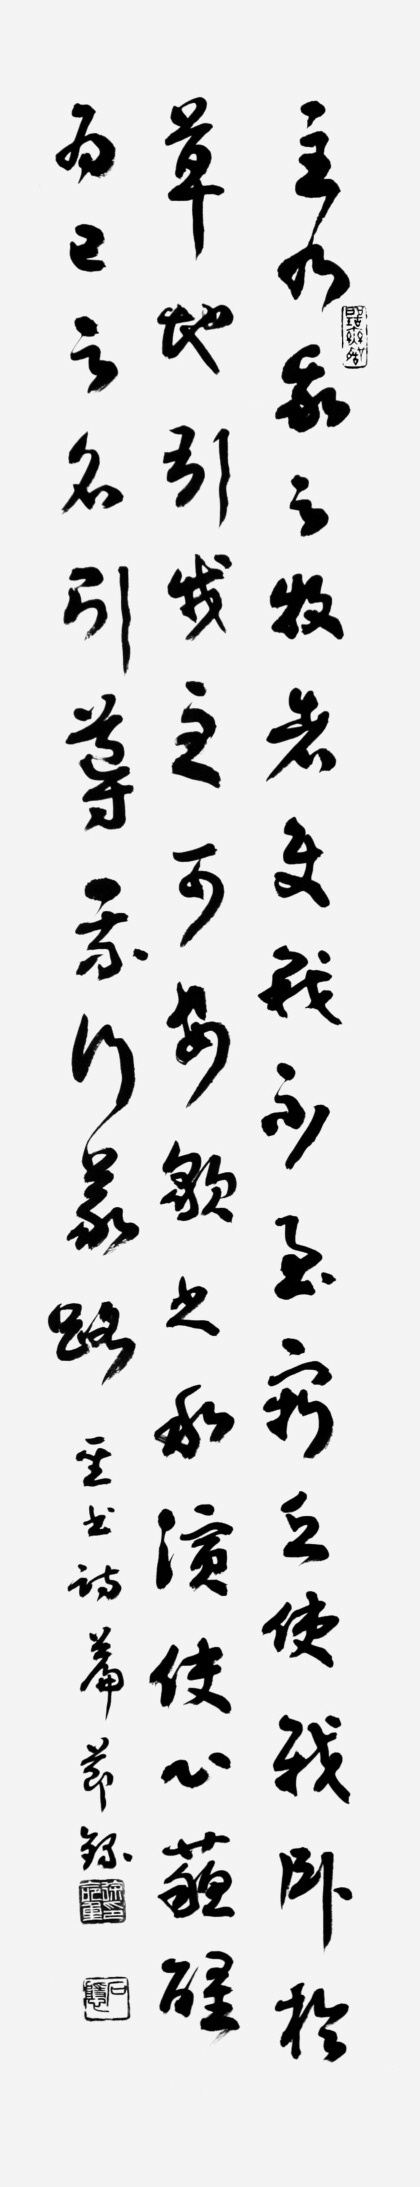 主乃我之牧者使我不至窮乏使我臥於
草地引我至可安歇之水濱使心蘇醒
為己之名引導我行義路
聖書詩篇節錄